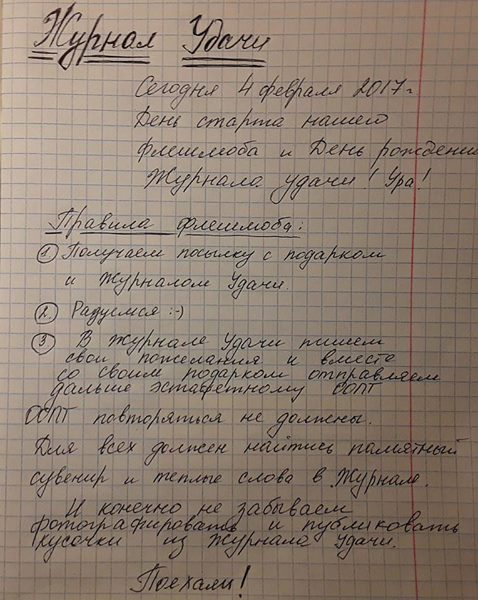 Журнал Удачи
Сегодня 4 февраля 2017г
День старта нашего
флешмоба и День рождения
Журнала удачи! Ура!
Правила флешмоба:
1 Получаем посылку с подарком
и Журналом Удачи.
2. Радуемся :-)
3 В Журнале Удачи пишем
свои пожелания и вместе
со своим подарком отправляем
дальше эстафетному ООПТ
ООПТ повторяться не должны.
Для всех должен найтись памятный
сувенир и теплые слова в Журнале.
И конечно не забываем
фотографировать и публиковать
кусочки из журнала Удачи.
Поехали!